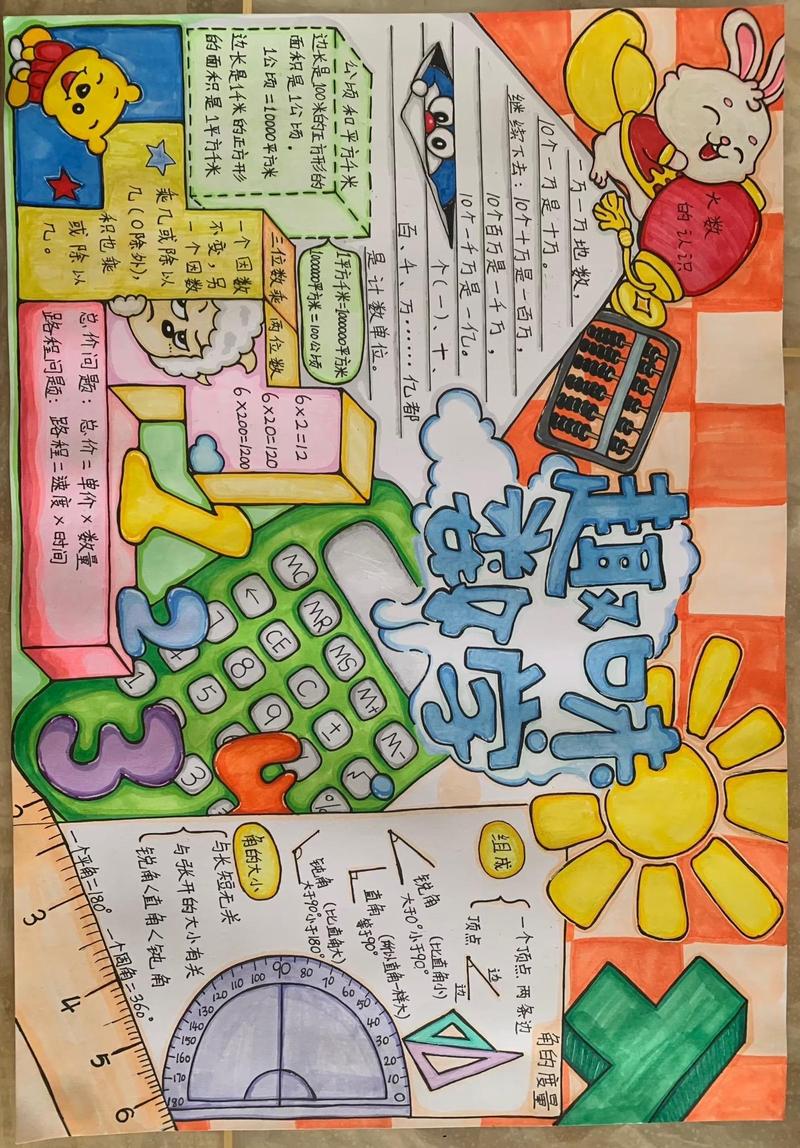 大数
的认识
趣味
数学
一万一万地数，
10个一万是十万。
继续下去：10个十万是一百万，
10个百万是一千万，
10个一千万是一亿。
个（一）、十、
百、千、万……亿都
是计数单位。
公顷和平方千米
边长是100米的正方形的
面积是1公顷。
1公顷=10000平方米
边长是1千米的正方形
的面积是1平方千米
1平方千米=1000000平方米
1000000平方米=100公顷
三位数乘两位数
一个因数
不变，另
一个因数
乘几或除以
几（0除外），
积也乘
或除以
几。
6×2=12
6×20=120
6×200=1200
总价问题：总价=单价×数量
路程问题：路程=速度×时间
MC MR MS M+ M-
← CE C +
7 8 9
4 5
1 3 %
1 2 3 4
角的度量
组成
一个顶点 两条边
顶点 边
边
锐角（比直角小）
大于0°小于90°
直角（所以直角一样大）
等于90°
钝角（比直角大）
大于90°小于180°
角的大小
与长短无关
与张开的大小有关
锐角<直角<钝角
一个平角=180° 一个周角=360°
0 10 20 30 40 50 60 70 80 90 100 110 120 130 140 150 160 170 180
3 4 5 6